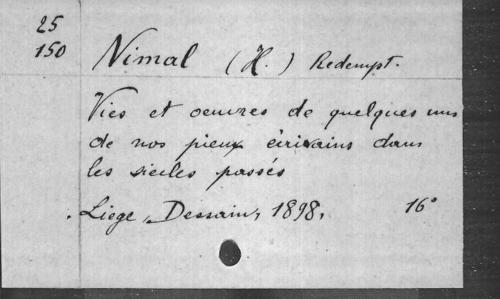 25
150
Nimal (H.) Redempt.
Vies et oeuvres de quelques uns
de nos pieux écrivains dans
les siecles passés
Liege, Dessain, 1898. 16°